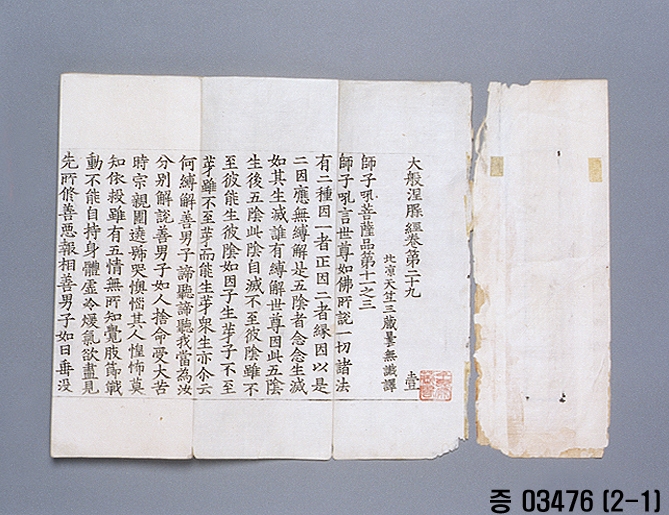 大般涅槃經卷第二十九
北凉天竺三藏曇無讖譯 壹
師子吼菩薩品第十一之三
師子吼言世尊如佛所說一切諸法
有二種因一者正因二者緣因以是
二因應無縛解是五陰者念念生滅
如其生滅誰有縛解世尊因此五陰
生後五陰此陰自滅不至彼陰雖不
至彼能生彼陰如因子生芽子不至
芽雖不至芽而能生芽衆生亦尒云
何縛解善男子諦聽諦聽我當為汝
分别解說善男子如人捨命受大苦
時宗親圍遶號哭懊惱其人惶怖莫
知依救雖有五情無所知覺肢節戰
動不能自持身體虛冷煖氣欲盡見
先所修善惡報相善男子如日垂没
증 03476 (2-1)